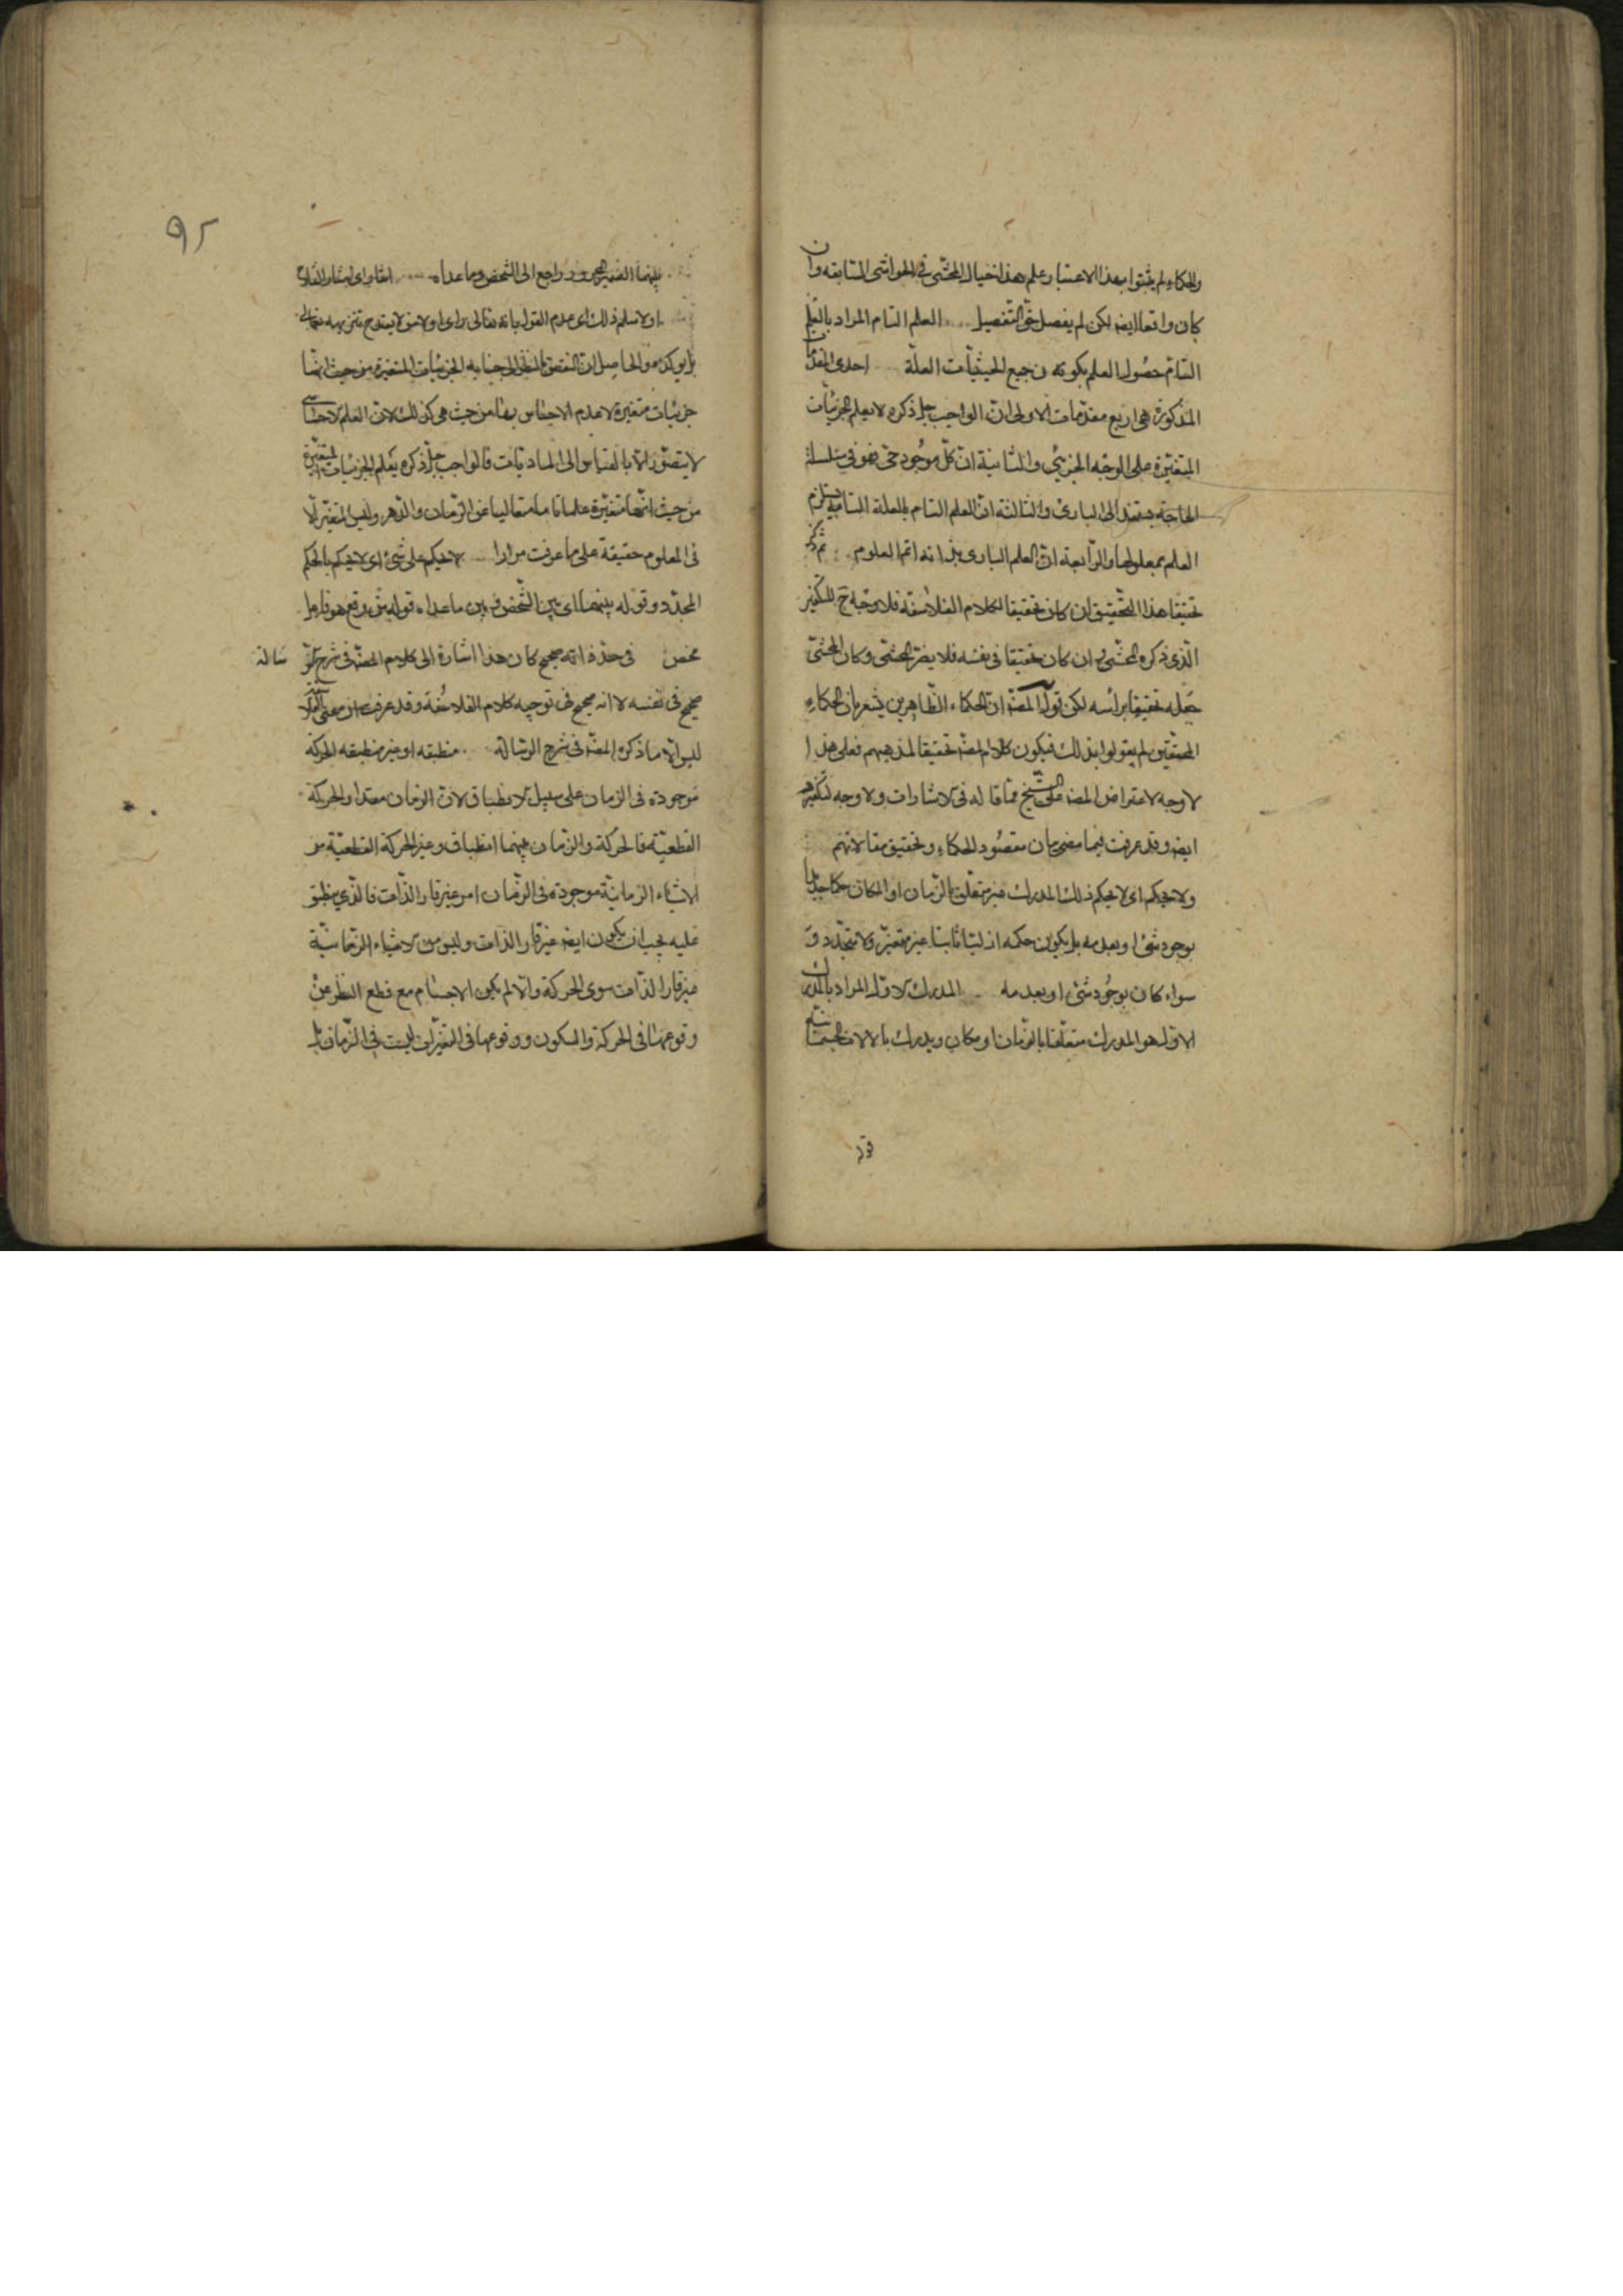 والحكماء لم يثبتوا بهذا الاعتبار علم هذا خيال المحشى فى الحواشى السابقه وان
كان واقعا ايضا لكن لم يفصل حق التفصيل العلم التام المراد بالعلم
التام حصول العلم بكونه ن جميع الحيثيات العلة احدى المقدمات
المذكورة هى اربع مقدمات الاولى ان الواجب جل ذكره لا يعلم الجزئيات
المتغيرة على الوجه الجزئى والثانية ان كل موجود فهو فى سلسلة
الحاجة يستند الى البارئ والثالثة ان العلم التام بالعلة التامة يستلزم
العلم بمعلولها والرابعة ان العلم البارى بذاته اتم العلوم ثم ذكر
تحقيقا هذا التحقيق ان كان تحقيقا لكلام الفلاسفة فلا وجه ح للتكفير
الذى ذكره المحشى وان كان تحقيقا فى نفسه فلا يضر المحشى وكان المحشى
جعله تحقيقا براسه لكن قول المصنف ان الحكماء الظاهرين يشعر بان الحكماء
المحققين لم يقولوا بذلك فيكون كلام المصنف تحقيقا لمذهبهم فعلى هذا
لا وجه لاعتراض المصنف على الشيخ مما قاله فى الاشارات ولا وجه لتكفيرهم
ايضا وقد عرفت فيما مضى بيان مقصود الحكماء وتحقيق مقالاتهم
ولا يحكم اى لا يحكم ذلك المدرك غير متعلق بالزمان او المكان حكما جديدا
بوجود شئ او بعدمه بل يكون حكمه ازليا ثابتا غير متغير ولا متجدد
سواء كان بوجود شئ او بعدمه المدرك الاول المراد بالمدرك
الاول هو المدرك متعلقا بالزمان او مكان ويدرك بالالات الجسمانية
٩٢
بينهما الضمير المجرور راجع الى الشخص وما عداه
او لا سلم ذلك اى عدم القول بانه تعالى يراى اولا لا يقدح تنزيهه تعالى
بل يؤكده والحاصل ان النقص بالنظر الى جنابه الجزئيات المتغيرة من حيث انها
جزئيات متغيرة لا عدم الاحساس بها من حيث هى كذلك لان العلم الاحساسى
لا يتصور الا بالقياس الى الماديات فالواجب جل ذكره يعلم الجزئيات المتغيرة
من حيث انها متغيرة علما تاما متعاليا عن الزمان والدهر وليس المتغير الا
فى المعلوم حقيقة على ما عرفت مرارا لا يحكم على شئ اى لا يحكم بالحكم
المجدد وقوله بينهما اى بين الشخص وبين ما عداه قوله وقع هو فاعل
محض فى حد ذاته صحيح كان هذا اشارة الى كلام المصنف فى شرح
سالة
صحيح فى نفسه لا انه صحيح فى توجيه كلام الفلاسفة وقد عرفت ان معنى
ليس الا ما ذكره المصنف فى شرح الرسالة منطبقه او غير منطبقه الحركة
موجودة فى الزمان على سبيل الانطباق لان الزمان مقدار الحركة
القطعية فالحركة والزمان بينهما انطباق وغير الحركة القطعية من
الاشياء الزمانية موجودة فى الزمان امر غير قار الذات فالذى ينطبق
عليه يجب ان يكون ايضا غير قار الذات وليس من الاشياء الزمانية
غير قار الذات سوى الحركة والا لم يكن الاجسام مع قطع النظر عن
وقوعها فى الحركة والسكون ووقوعها فى التغيرات ليست فى الزمان بل